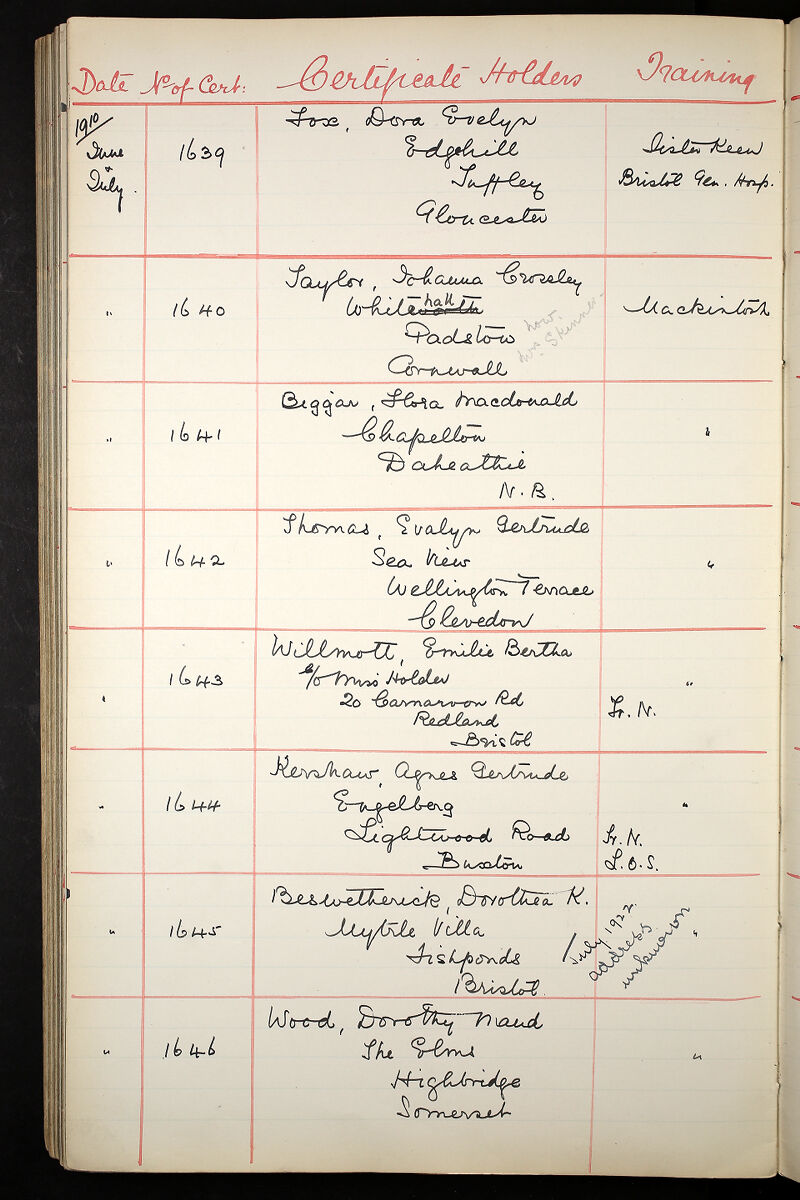 Date No of Cert: Certificate Holders Training
1910
June & July. 1639 Fox, Dora Evelyn
Edgehill Sister Keen
Tuffley Bristol Gen. Hosp.
Gloucester
Taylor, Johanna Crossley
" 1640 Whitehall Mackintosh
Padstow
Cornwall
now.
Mrs Skinner.
Biggar, Flora Macdonald
" 1641 Chapelton "
Daheathie
N. B.
Thomas, Evalyn Gertrude
" 1642 Sea View "
Wellington Terrace
Clevedon
Willmott, Emilie Bertha
" 1643 c/o Miss Holder "
20 Carnarvon Rd Tr. N.
Redland
Bristol
Kershaw, Agnes Gertrude
" 1644 Engelberg "
Lightwood Road Tr. N.
Buxton L.O.S.
Beswetherick, Dorothea K.
" 1645 Myrtle Villa "
Fishponds
Bristol.
July 1922.
address
unknown
Wood, Dorothy Maud
" 1646 The Elms "
Highbridge
Somerset